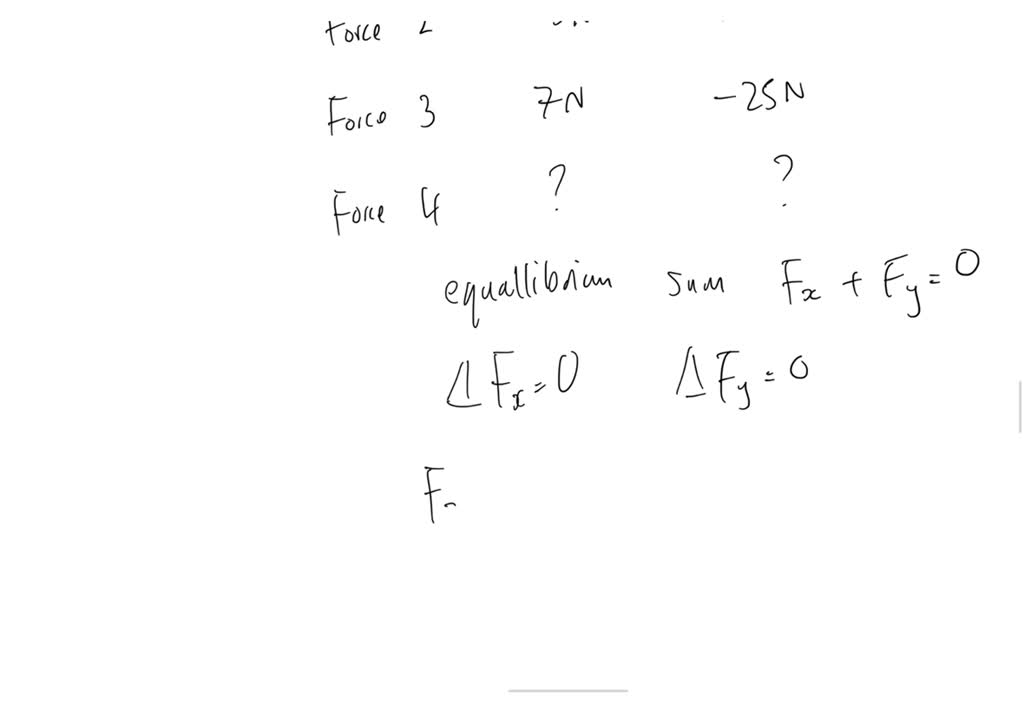 Force 2
Force 3 7N -25N
Force 4 ? ?
equallibrium sum Fx + Fy = 0
ΔFx = 0 ΔFy = 0
F